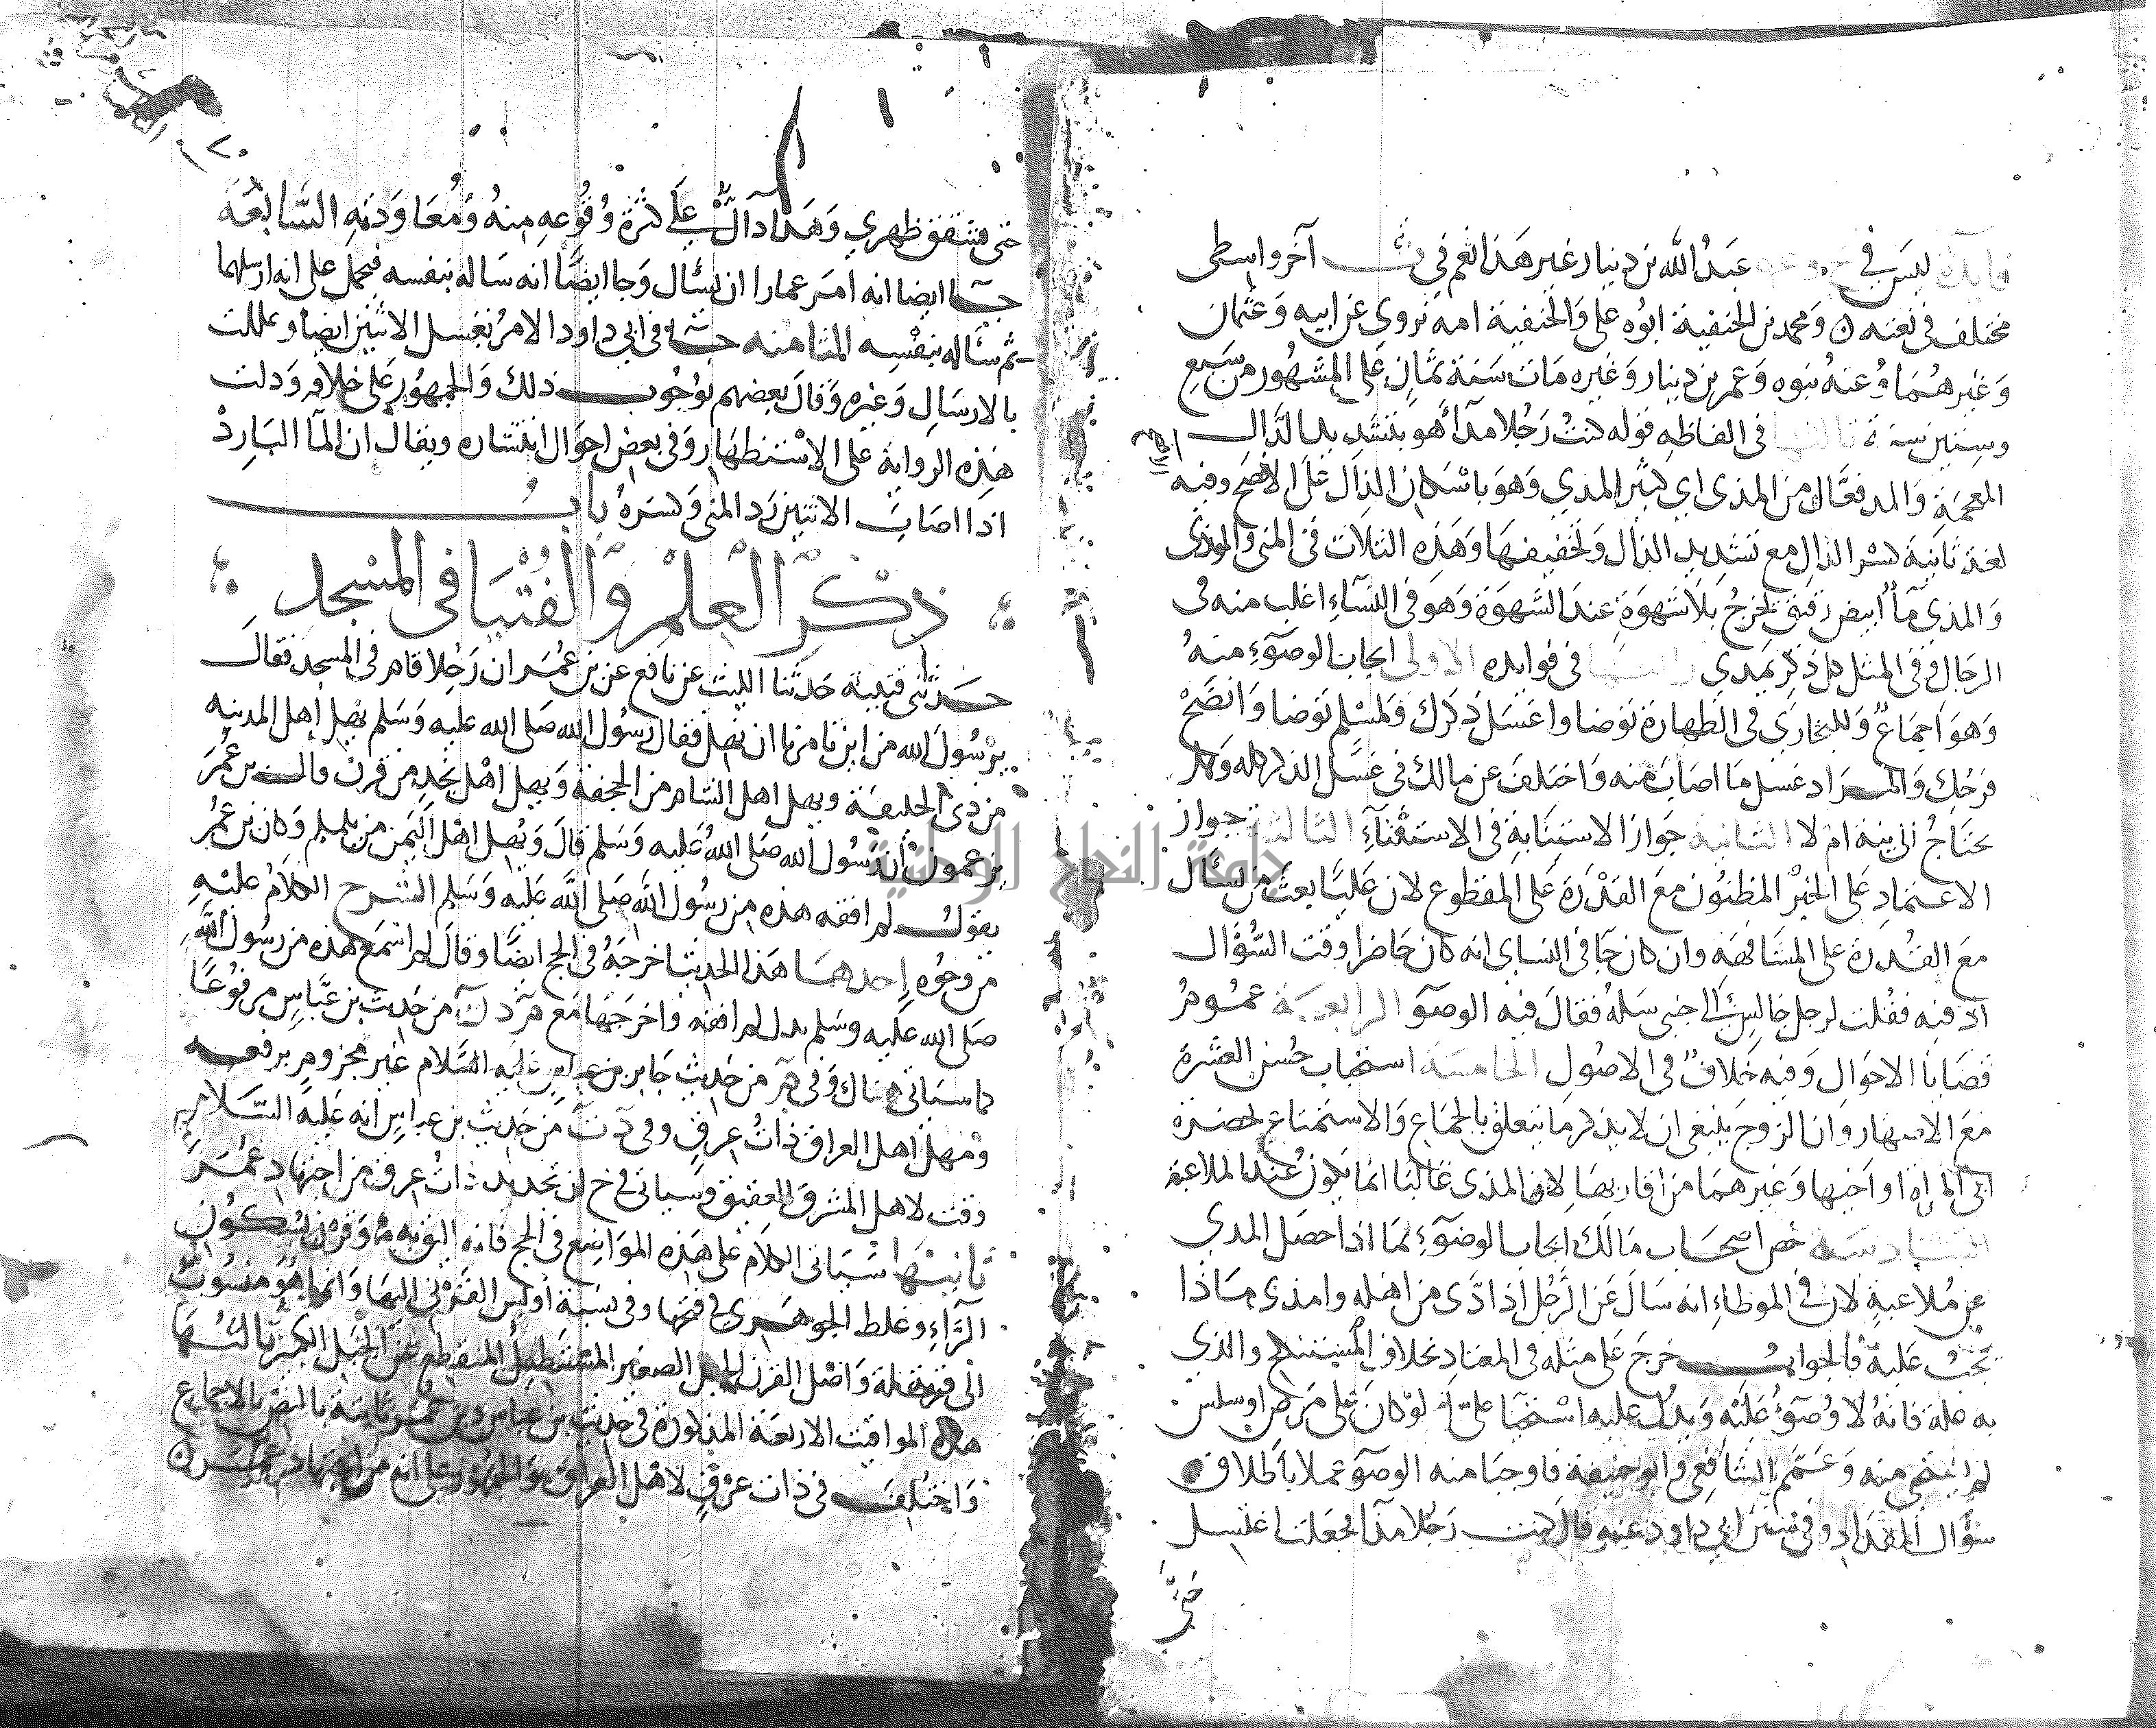 ليس في عبد الله بن دينار غير هذا نعم في آخر واسطى
مختلف في نعته ومحمد بن الحنفية ابوه على والحنفية امه تروى عن ابيه وعثمان
وغيرهما وعنه بنوه وعمر بن دينار وغيره مات سنة ثمانٍ على المشهور من سبع
في الفاظه قوله كنت رجلا مذاء هو بتشديد الذال
المعجمة والمد فعّال من المذى اي كثير المذي وهو باسكان الذال على الافصح وفيه
لغة ثانية كسر الذال مع تشديد الذال وتخفيفها وهذه الثلاث في المنى والوذى
والمذى ماء ابيض رقيق يخرج بلا شهوة عند الشهوة وهو في النساء اغلب منه في
الرجال وفى المثل كل ذكر يمذى في فوايده الاولى ايجاب الوضوء منه
وهو اجماع وللبخارى في الطهارة توضا واغسل ذكرك ولمسلم توضا وانضح
فرجك والمراد غسل ما اصابه منه واختلف عن مالك في غسل الذكر كله وهل
يحتاج الى نية ام لا الثانية جواز الاستنابة في الاستفتاء الثالثة جواز
الاعتماد على الخبر المظنون مع القدرة على المقطوع لان عليا بعث من يسال
مع القدرة على المشافهة وان كان جا في النساى انه كان حاضرا وقت السؤال
اذ فيه فقلت لرجل جالس الى جنبى سله فقال فيه الوضوء الرابعة عموم
قضايا الاحوال وفيه خلاف في الاصول الخامسة استحباب حسن العشرة
مع الاصهار وان الزوج ينبغى ان لا يذكر ما يتعلق بالجماع والاستمتاع بحضرة
ابى المراة او اخيها وغيرهما من اقاربها لان المذى غالبا انما يكون عند الملاعبة
السادسة خص اصحاب مالك ايجاب الوضوء بما اذا حصل المذي
عن ملاعبة لان في الموطاء انه سال عن الرجل اذا دنى من اهله وامذى ماذا
يجب عليه فالجواب خرج على مثله في المعتاد بخلاف المستنكح والذي
به علة فانه لا وضوء عليه ويدل عليه لو كان على مرض او سلس
لم يستحى منه وعمم الشافعى وابو حنيفة فاوجبا منه الوضوء عملا باطلاق
سؤال المقداد وفي سنن ابي داود عنه قال كنت رجلا مذاء فجعلت اغتسل
حتى
حتى تشقق ظهري وهذا دال على كثرة وقوعه منه ومعاودته السابعة
جا ايضا انه امر عمارا ان يسال وجا ايضا انه ساله بنفسه فيحمل على انه ارسلهما
ثم ساله بنفسه الثامنة جا في ابي داود الامر بغسل الانثيين ايضا وعللت
بالارسال وغيره وقال بعضهم بوجوب ذلك والجمهور على خلافه ودلت
هذه الرواية على الاستظهار وفى بعض احوال انتشاره ويقال ان الماء البارد
اذا اصاب الانثيين رد المنى وكسره باب
ذكر العلم والفتيا في المسجد
حدثنى قتيبة حدثنا الليث عن نافع عن بن عمر ان رجلا قام في المسجد فقال
يرسول الله من اين تامرنا ان نهل فقال رسول الله صلى الله عليه وسلم يهل اهل المدينه
من ذى الحليفة ويهل اهل الشام من الجحفة ويهل اهل نجد من قرن قال بن عمر
يزعمون ان رسول الله صلى الله عليه وسلم قال ويهل اهل اليمن من يلملم وكان بن عمر
يقول لم افقه هذه من رسول الله صلى الله عليه وسلم الشرح الكلام عليه
من وجوه احدها هذا الحديث اخرجه في الحج ايضا وقال لم اسمع هذه من رسول الله
صلى الله عليه وسلم بدل لم افقه واخرجها مع من حديث بن عباس مرفوعا
كما سياتى هناك وفى من حديث جابر عليه السلام غير مجزوم برفعه
ومهل اهل العراق ذات عرق وفى من حديث بن عباس انه عليه السلام
وقت لاهل المشرق العقيق وسياتى في خ ان تحديد ذات عرق من اجتهاد عمر
ثانيها سياتى الكلام على هذه المواضع في الحج فانه اليق به وقرن بسكون
الراء وغلط الجوهرى في فتحها وفى نسبة اويس القرنى اليها وانما هو منسوب
الى قبيلة واصل القرن الجبل الصغير المستطيل المنقطع عن الجبل الكبير ثالثها
هذه المواقيت الاربعة المذكورة في حديث بن عباس وبن عمر ثابتة بالنص بالاجماع
واختلف في ذات عرق لاهل العراق والجمهور على انه من اجتهاد عمر